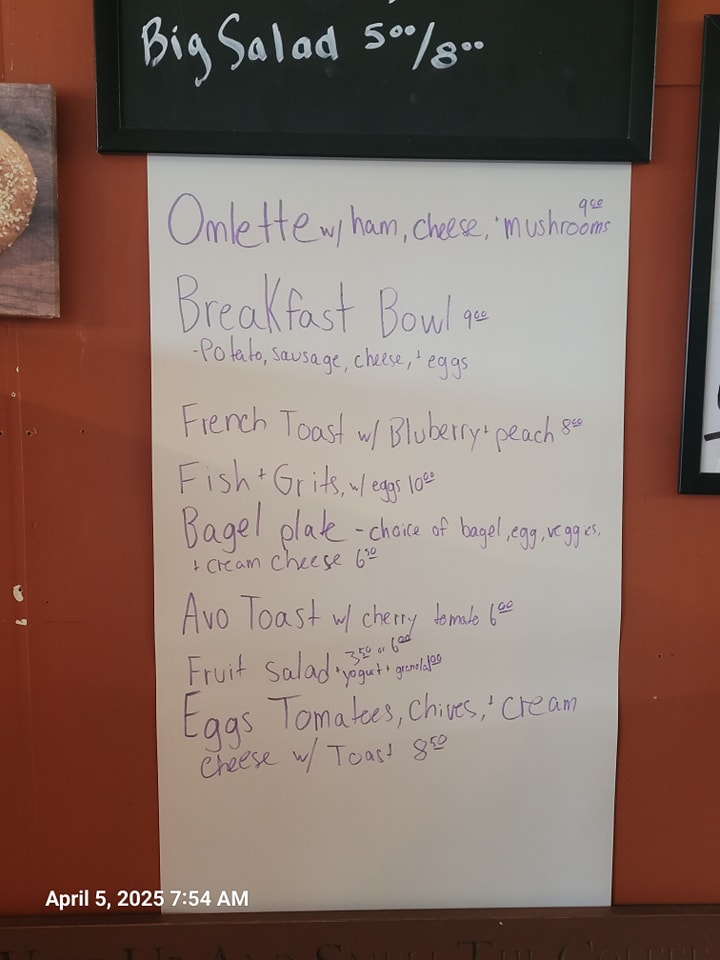 Big Salad 5⁰⁰/8⁰⁰
9⁰⁰
Omlette w/ ham, cheese, + mushrooms
Breakfast Bowl 9⁰⁰
-Potato, sausage, cheese, + eggs
French Toast w/ Bluberry + peach 8⁰⁰
Fish + Grits, w/ eggs 10⁰⁰
Bagel plate - choice of bagel, egg, veggies,
+ cream cheese 6⁵⁰
Avo Toast w/ cherry tomato 6⁰⁰
3⁵⁰ or 6⁰⁰
Fruit salad + yogurt + granola 1⁰⁰
Eggs Tomatoes, chives, + cream
cheese w/ Toast 8⁵⁰
April 5, 2025 7:54 AM
Up And Smell The Coffee